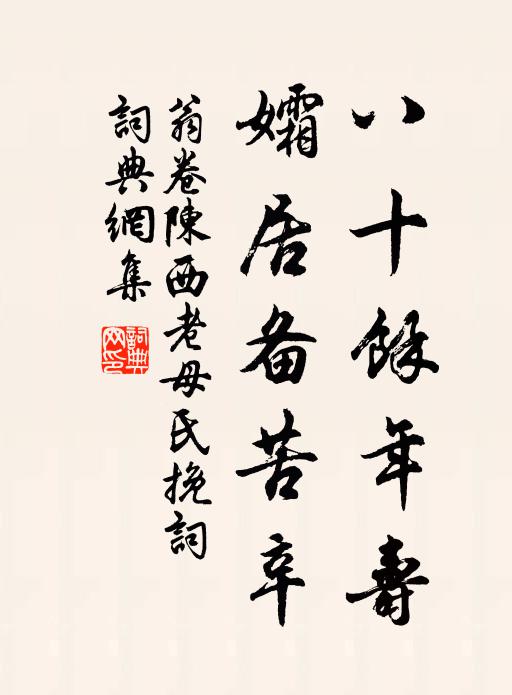 八十餘年壽
孀居备苦辛
翁卷陳西老母氏挽詞
詞典網集
詞典网印